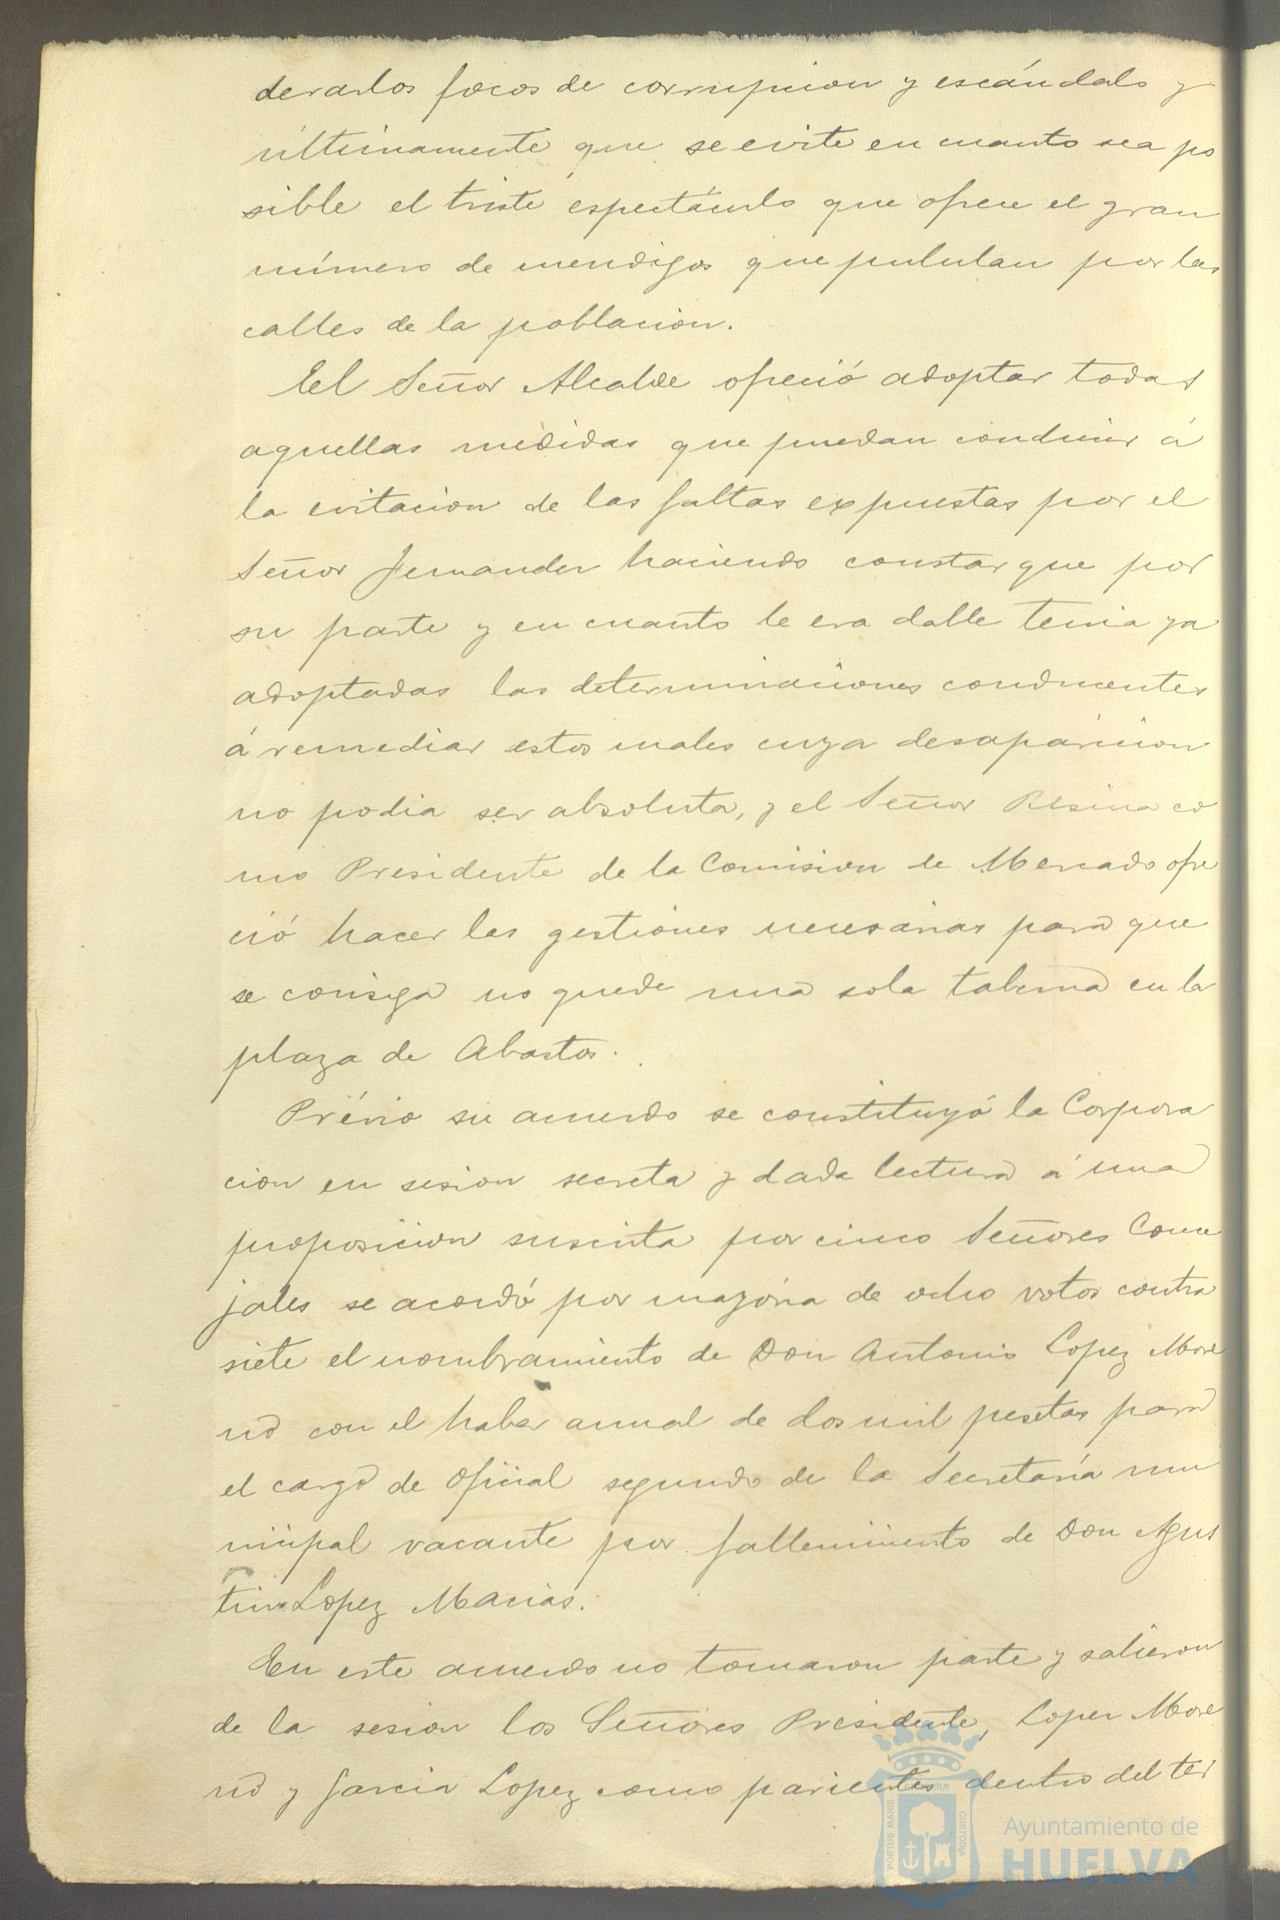 derarlos focos de corrupcion y escándalo y
últimamente que se evite en cuanto sea po
sible el triste espectáculo que ofrece el gran
número de mendigos que pululan por las
calles de la poblacion.
El Señor Alcalde ofreció adoptar todas
aquellas medidas que puedan conducir á
la evitacion de las faltas expuestas por el
Señor Fernandez haciendo constar que por
su parte y en cuanto le era dable tenia ya
adoptadas las determinaciones conducentes
á remediar estos males cuya desaparicion
no podia ser absoluta, y el Señor Resina co
mo Presidente de la Comision de Mercado ofre
ció hacer las gestiones necesarias para que
se consiga no quede una sola taberna en la
plaza de Abastos.
Prévio su acuerdo se constituyó la Corpora
cion en sesion secreta y dada lectura á una
proposicion suscrita por cinco Señores Conce
jales se acordó por mayoria de ocho votos contra
siete el nombramiento de Don Antonio Lopez More
no con el haber anual de dos mil pesetas para
el cargo de oficial segundo de la Secretaría mu
nicipal vacante por fallecimiento de Don Agus
tin Lopez Macias.
En este acuerdo no tomaron parte y salieron
de la sesion los Señores Presidente, Lopez More
no y Garcia Lopez como parientes dentro del ter
PORTUS MARIS
CUSTODIA
Ayuntamiento de
HUELVA